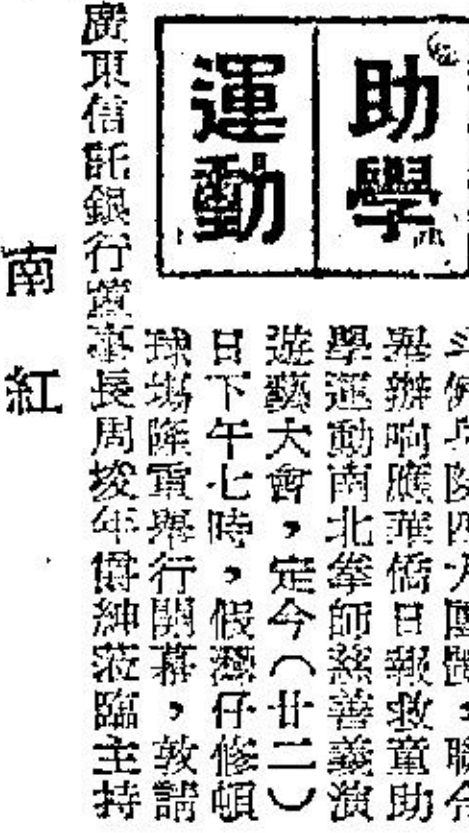 助學
運動
四大團體，聯合
舉辦响應華僑日報救童助
學運動南北拳師慈善義演
遊藝大會，定今（廿二）
日下午七時，假灣仔修頓
球場隆重舉行開幕，敦請
廣東信託銀行董事長周埈年爵紳蒞臨主持
南紅